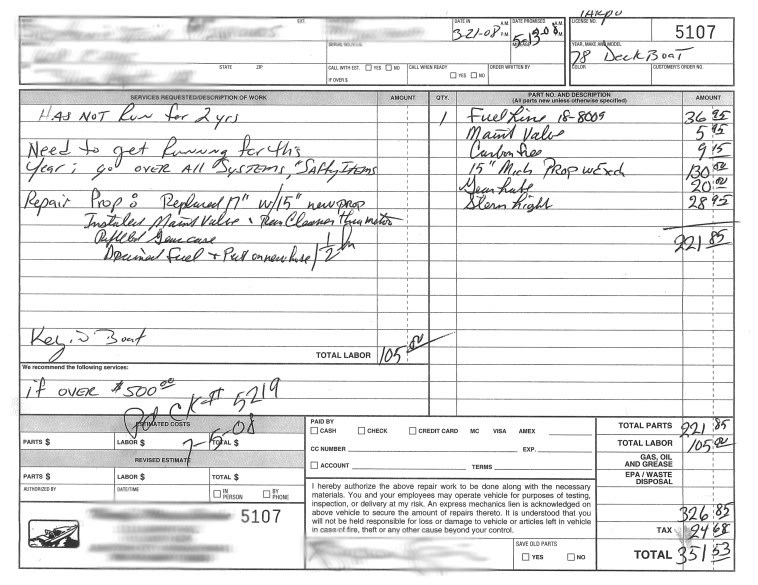 EXT.
DATE IN
3-21-08
A.M.
P.M.
DATE PROMISED
5-13-08
A.M.
P.M.
LICENSE NO.
5107
STATE ZIP
CALL WITH EST. YES NO
IF OVER $
CALL WHEN READY
YES NO
ORDER WRITTEN BY
YEAR, MAKE AND MODEL
78 DeckBoat
COLOR
CUSTOMER'S ORDER NO.
SERVICES REQUESTED/DESCRIPTION OF WORK
AMOUNT
HAS NOT Run for 2 yrs
Need to get Running for this
year; go over All Systems, "Safty Items
Repair Prop: Replaced 17" w/15" new prop
Installed Maint Valve + Run Cleaner thru motor
Refilled Gearcase
Drained Fuel + Put on new hose 1 1/2 hr
Key in Boat
TOTAL LABOR 105.00
QTY.
PART NO. AND DESCRIPTION
(All parts new unless otherwise specified)
AMOUNT
1 Fuel Line 18-8009 36 95
Maint Valve 5 95
Carbon free 9 15
15" Mich Prop w Exch 130 00
Gear lube 20 00
Stern light 28 95
221 85
We recommend the following services:
if OVER $500.00
Pd CK# 5219
7-5-08
ESTIMATED COSTS
PARTS $ LABOR $ TOTAL $
REVISED ESTIMATE
PARTS $ LABOR $ TOTAL $
AUTHORIZED BY DATE/TIME
IN PERSON BY PHONE
5107
PAID BY
CASH CHECK CREDIT CARD MC VISA AMEX
CC NUMBER EXP.
ACCOUNT TERMS
I hereby authorize the above repair work to be done along with the necessary
materials. You and your employees may operate vehicle for purposes of testing,
inspection, or delivery at my risk. An express mechanics lien is acknowledged on
above vehicle to secure the amount of repairs thereto. It is understood that you
will not be held responsible for loss or damage to vehicle or articles left in vehicle
in case of fire, theft or any other cause beyond your control.
SAVE OLD PARTS
YES NO
TOTAL PARTS 221 85
TOTAL LABOR 105.00
GAS, OIL
AND GREASE
EPA / WASTE
DISPOSAL
326 85
TAX 24 68
TOTAL 351 53